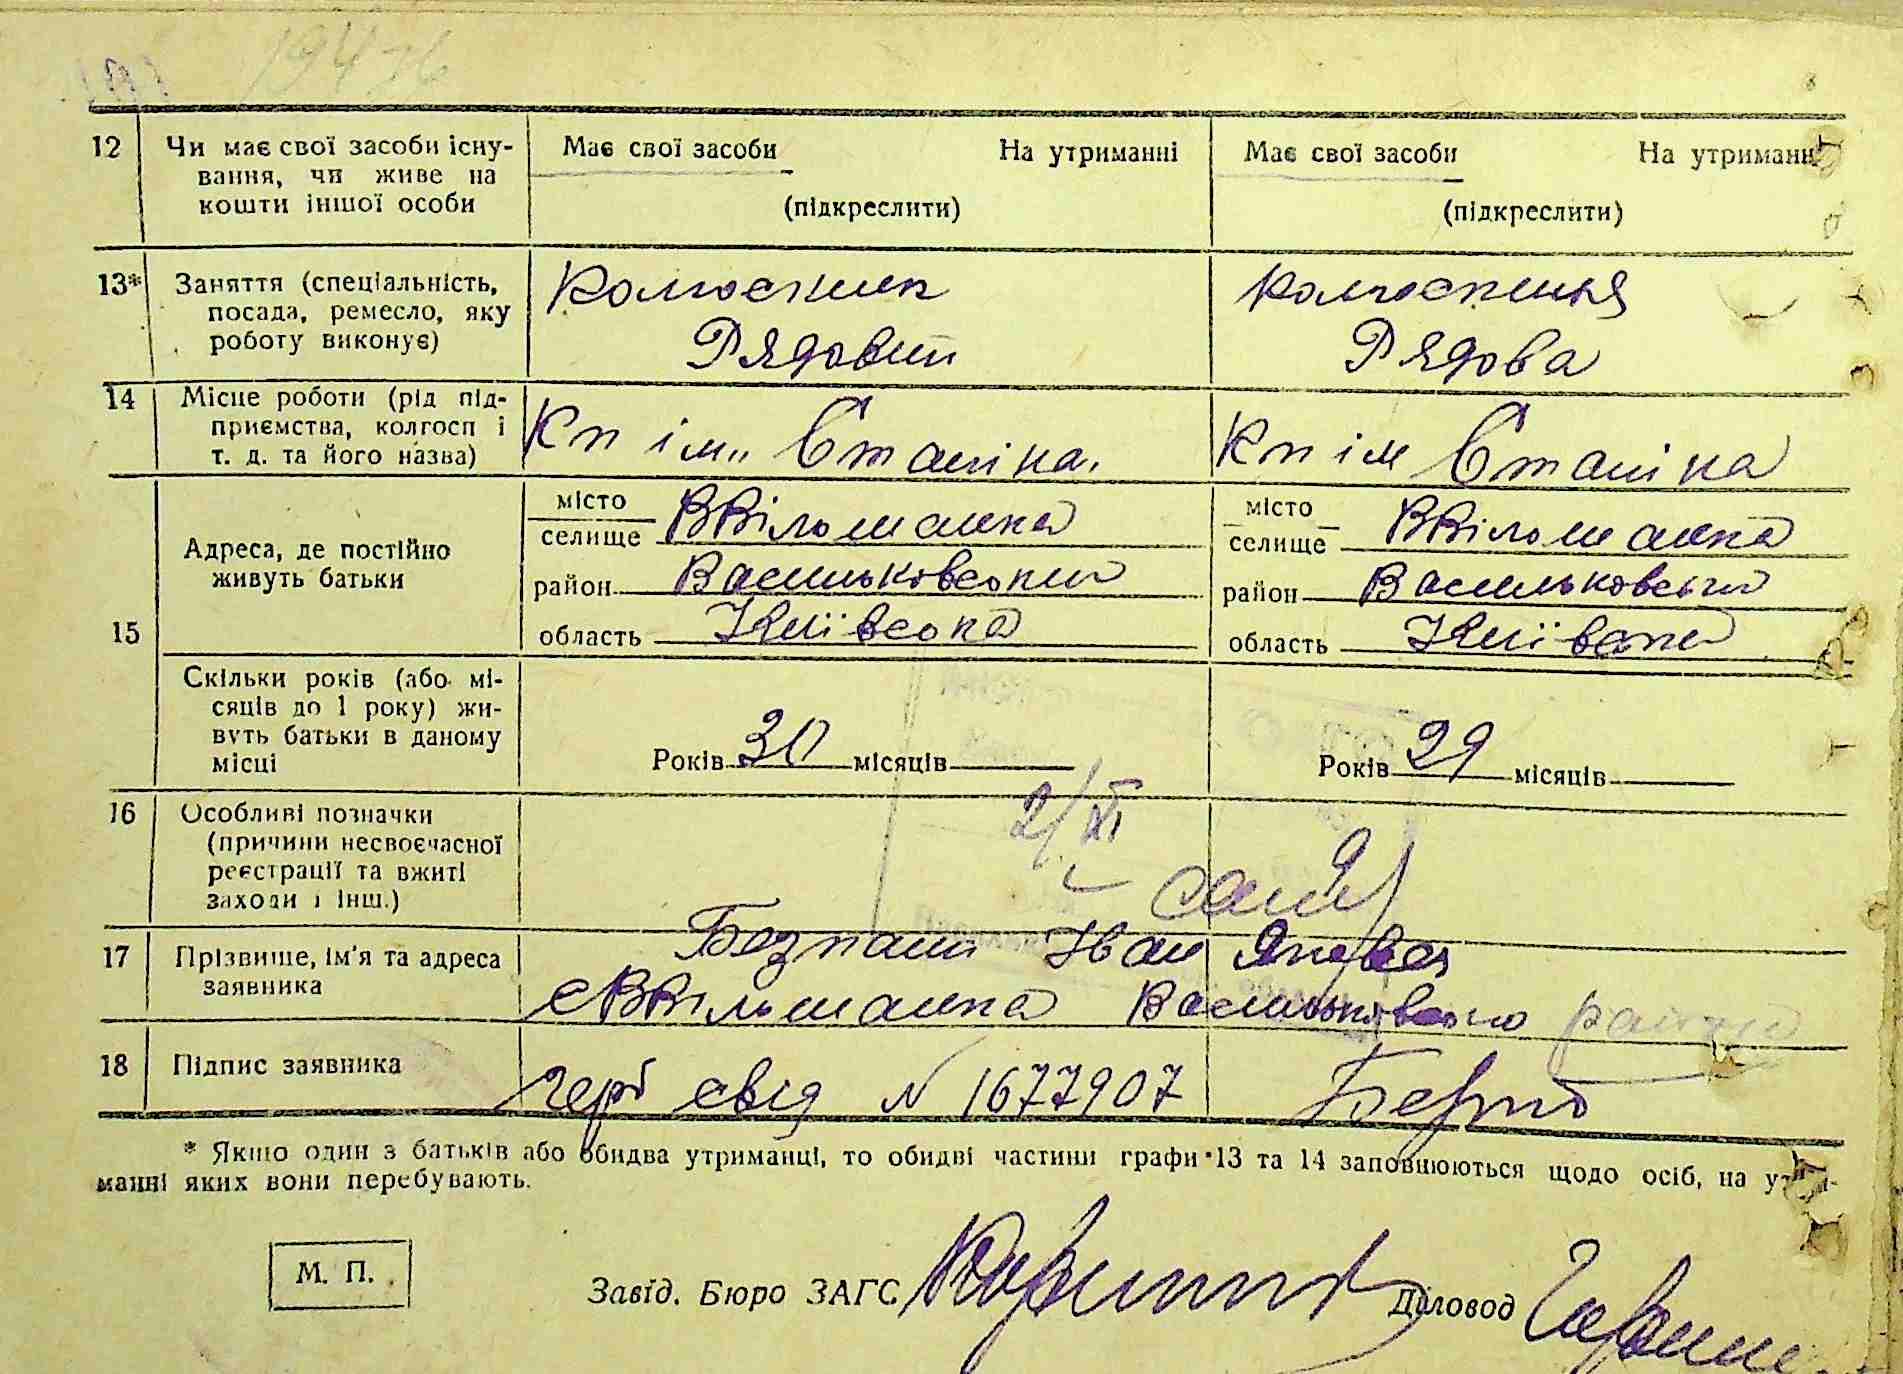 12 Чи має свої засоби існу- Має свої засоби На утриманні Має свої засоби На утриманні
вання, чи живе на
кошти іншої особи (підкреслити) (підкреслити)
13* Заняття (спеціальність, Колгоспник Колгоспниця
посада, ремесло, яку
роботу виконує) Рядовий Рядова
14 Місце роботи (рід під-
приємства, колгосп і Кп ім. Сталіна. Кп ім Сталіна
т. д. та його назва)
місто місто
селище ВВільшанка селище ВВільшанка
15 Адреса, де постійно
живуть батьки район Васильковський район Васильковський
область Київська область Київська
Скільки років (або мі-
сяців до 1 року) жи-
вуть батьки в даному Років 30 місяців Років 29 місяців
місці
16 Особливі позначки 2/XI
(причини несвоєчасної
реєстрації та вжиті
заходи і інш.)
17 Прізвище, ім'я та адреса Іван
заявника с ВВільшанка Васильковського району
18 Підпис заявника герб свід N 1677907
* Якщо один з батьків або обидва утриманці, то обидві частини графи 13 та 14 заповнюються щодо осіб, на утри-
манні яких вони перебувають.
М. П.
Завід. Бюро ЗАГС Діловод